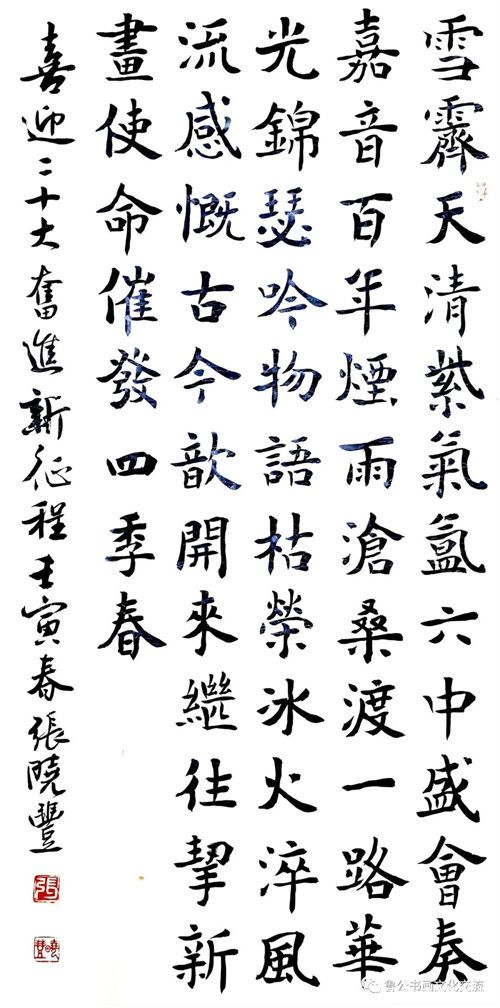 雪霽天清紫氣氳六中盛會奏
嘉音百年煙雨滄桑渡一路華
光錦瑟吟物語枯榮冰火淬風
流感慨古今歆開來繼往挈新
畫使命催發四季春
喜迎二十大奮進新征程壬寅春張曉豐
張
曉豐
鲁公书画文化交流